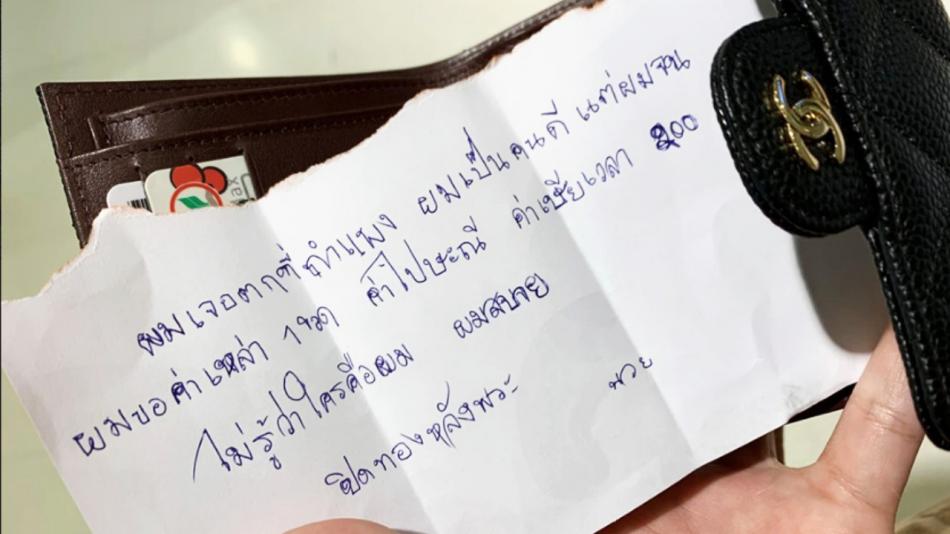 ผมเจอตกที่กำแพง ผมเป็นคนดี แต่ผมจน
ผมขอค่าเหล่า 1ขวด ค่าไปษะณี ค่าเสียเวลา 200
ไม่รู้ว่าใครคือผม ผมสบาย
ปิดทองหลังพระ